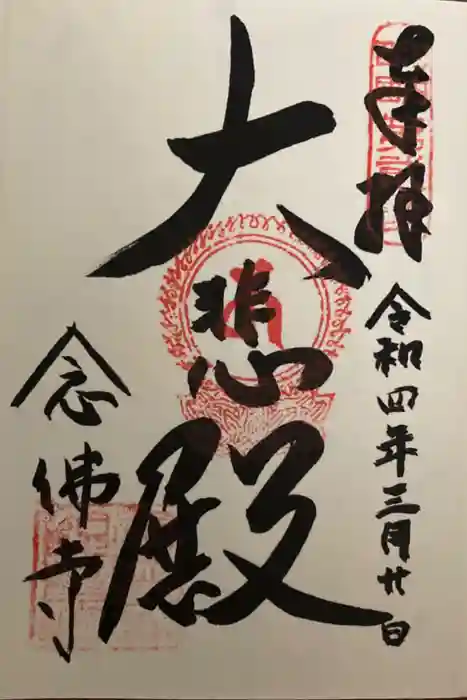 奉拝
令和四年三月廿日
大悲殿
念佛寺